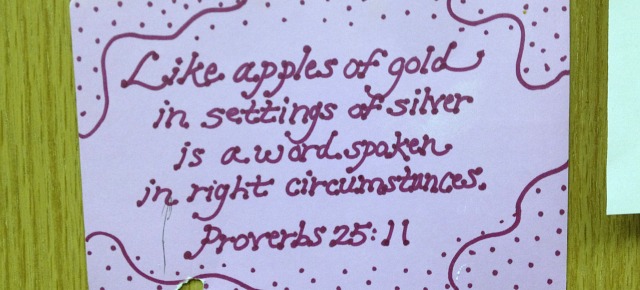 Like apples of gold
in settings of silver
is a word spoken
in right circumstances.
Proverbs 25:11